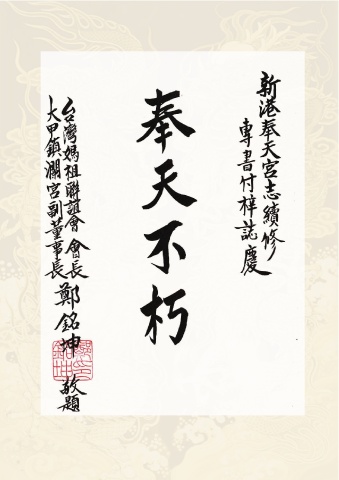 新港奉天宮志續修
專書付梓誌慶
奉天不朽
台灣媽祖聯誼會會長
大甲鎮瀾宮副董事長
鄭銘坤 敬題